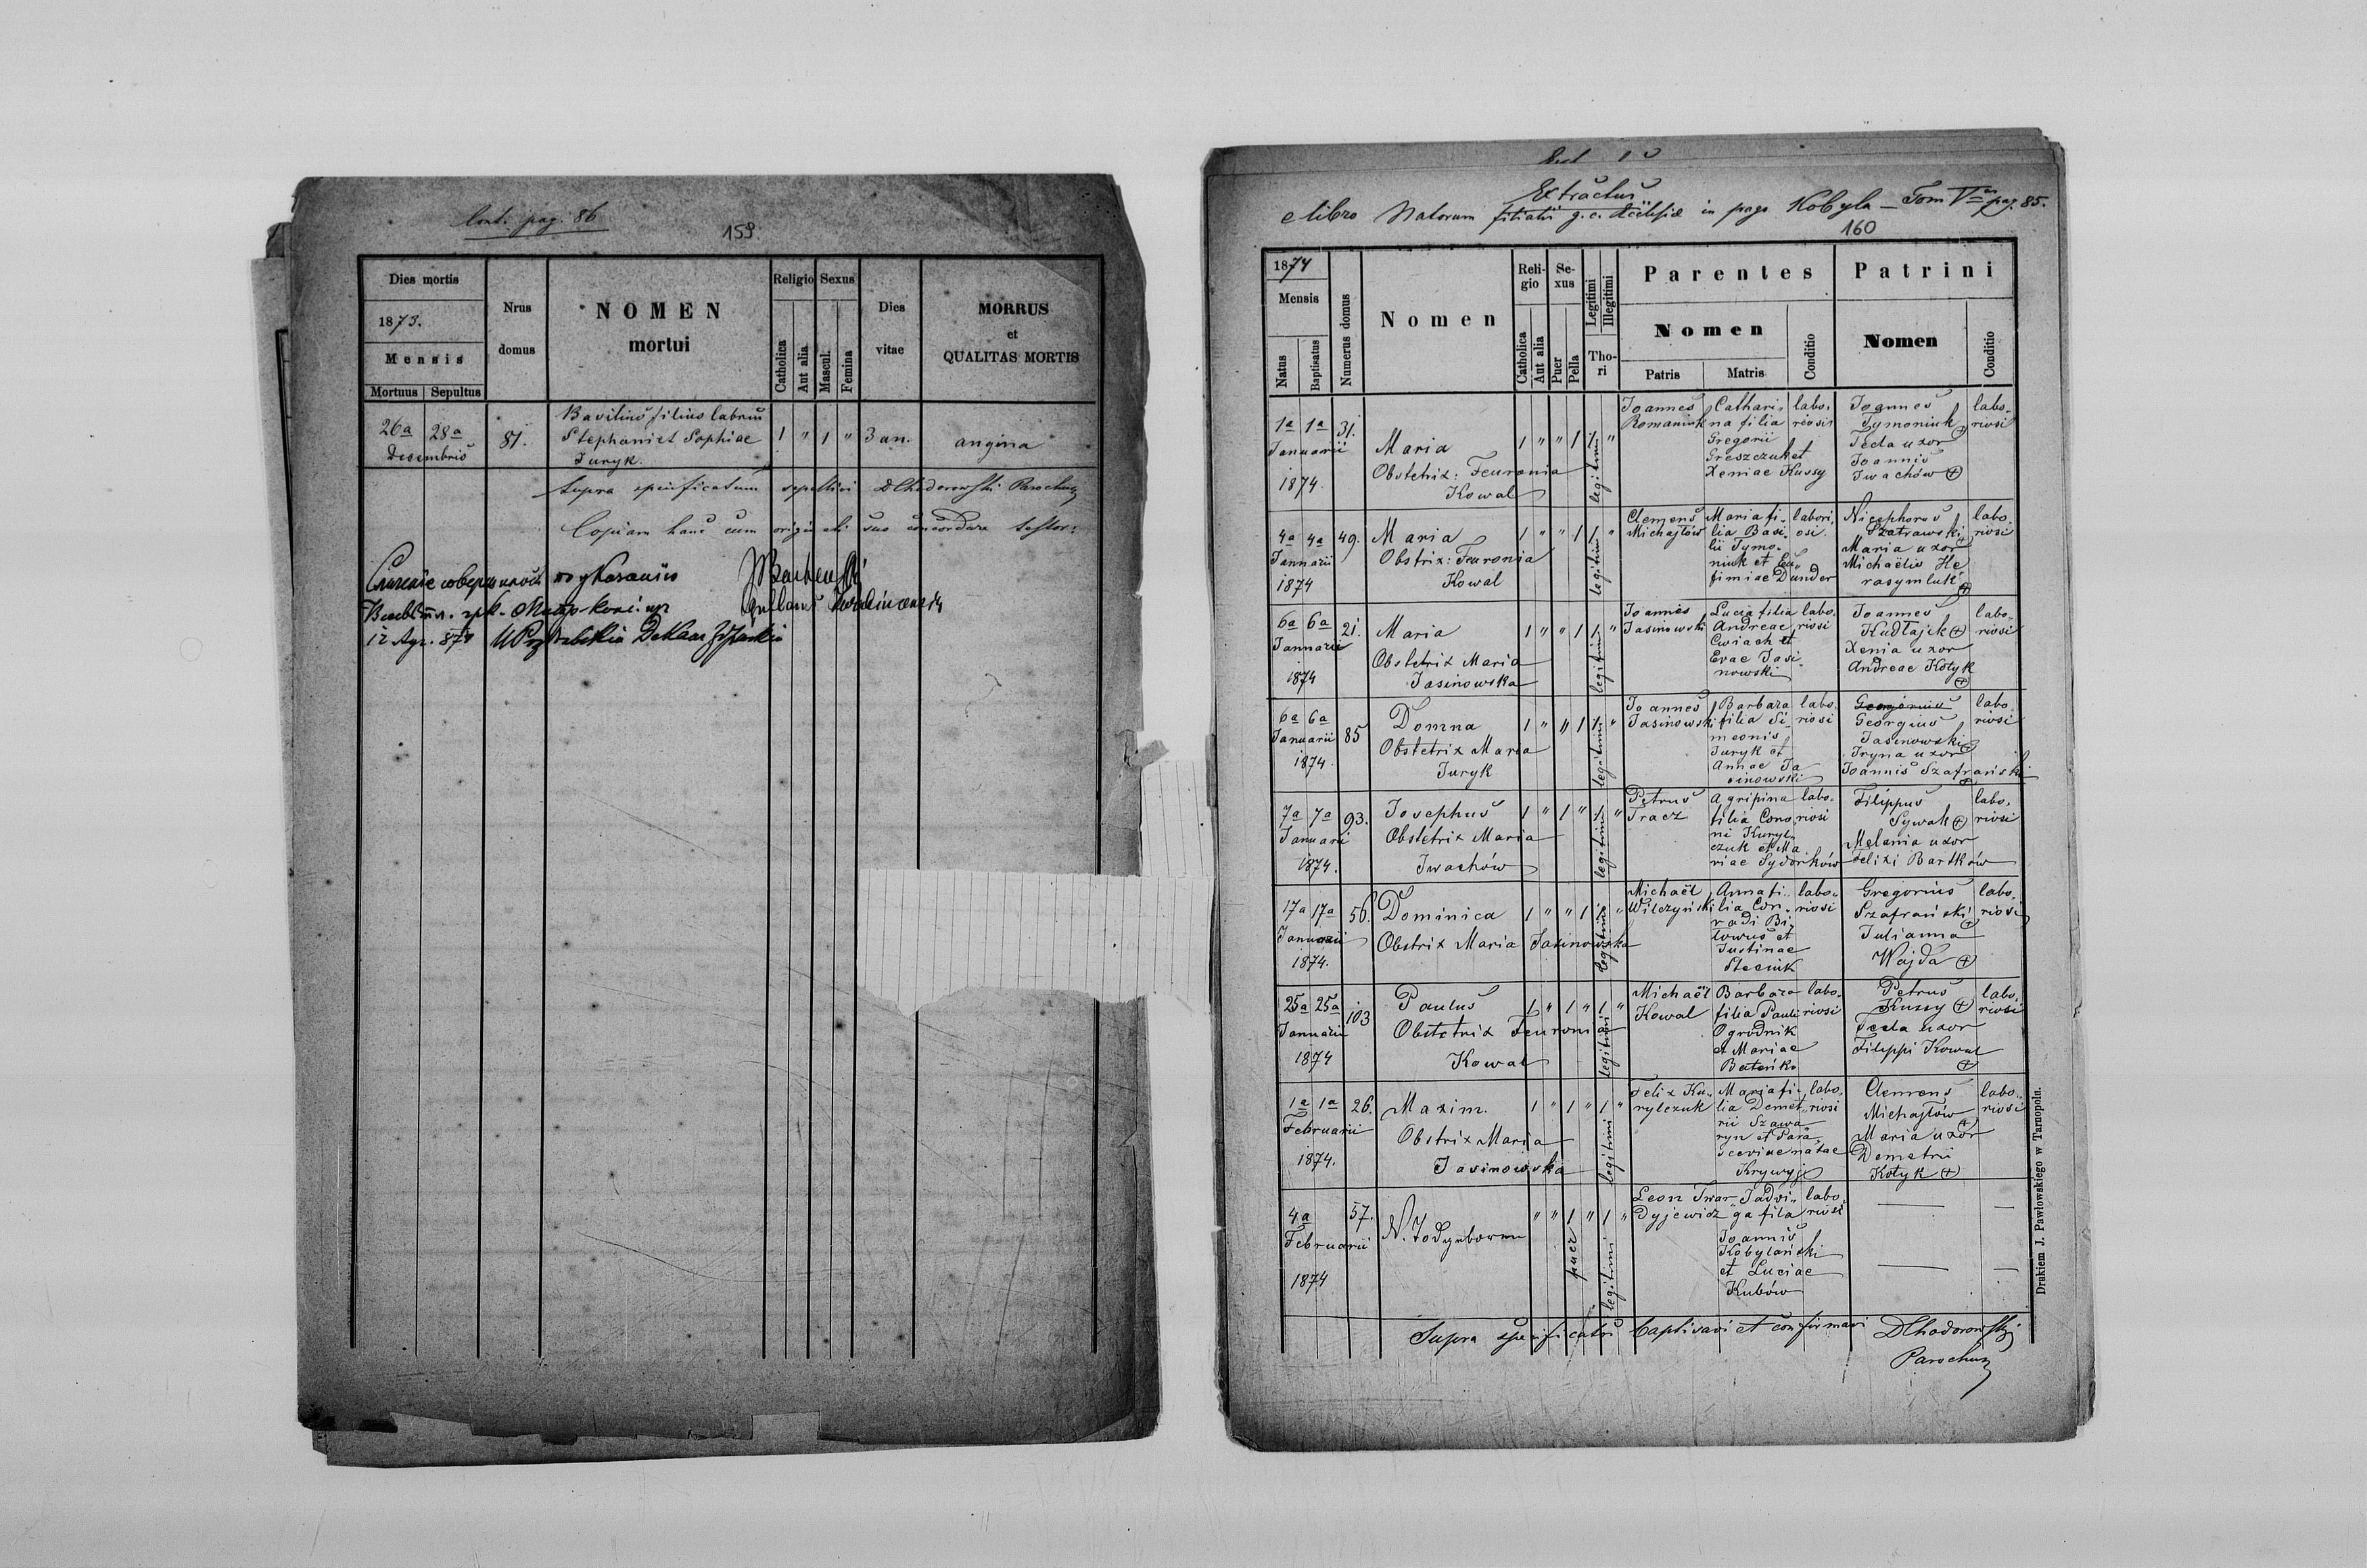 Cont. pag. 86
159
Dies mortis
1873.
Mensis
Mortuus Sepultus
Nrus domus
NOMEN mortui
Religio
Catholica
Aut alia
Sexus
Mascul.
Femina
Dies vitae
MORRUS et QUALITAS MORTIS
26a 28a
Decembris
81.
Basilius filius labrum
Stephani et Sophiae
Juryk.
1 " 1 "
3 an.
angina
Supra specificatum sepelivi DChodorowski Parochus
Copiam hanc cum originali suo concordare testor:
12 1874
Extractus
e libro Natorum filialis g. c. Ecclesiae in pago Kobyla – Tom V pag. 85.
160
1874
Mensis
Natus
Baptisatus
Numerus domus
Nomen
Religio
Catholica
Aut alia
Sexus
Puer
Pella
Legitimi
Illegitimi
Thori
Parentes
Nomen
Patris
Matris
Conditio
Patrini
Nomen
Conditio
1a 1a
Januarii
1874.
31.
Maria
Obstetrix: Feuronia
Kowal
1 " " 1 1 "
legitimi
Joannes
Romaniuk
Cathari-
na filia
Gregorii
Greszczuk et
Xeniae Kussy
labo-
riosi
Joannes
Tymoniuk
Tecla uxor
Joannis
Iwachów
labo-
riosi
4a 4a
Januarii
1874
49.
Maria
Obstrix: Feuronia
Kowal
1 " " 1 1 "
legitimi
Clemens
Michajłów
Maria fi-
lia Basi-
lii Tymo-
niuk et Eu-
fimiae Dunder
labori-
osi.
Nicephorus
Szatrawski
Maria uxor
Michaëlis He-
rasymluk
labo-
riosi
6a 6a
Januarii
1874
21.
Maria
Obstetrix Maria
Jasinowska
1 " " 1 1 "
legitimi
Joannes
Jasinowski
Lucia filia
Andreae
Cwiach et
Evae Jasi-
nowski
labo-
riosi
Joannes
Kudłajck
Xenia uxor
Andreae Kotyk
labo-
riosi
6a 6a
Januarii
1874.
85
Domna
Obstetrix Maria
Juryk
1 " " 1 1 "
legitimi
Joannes
Jasinowski
Barbara
filia Si-
meonis
Juryk et
Annae Ja-
sinowski
labo-
riosi
Georgius
Jasinowski
Iryna uxor
Joannis Szafrański
labo-
riosi
7a 7a
Januarii
1874.
93.
Josephus
Obstetrix Maria
Iwachów
1 " 1 " 1 "
legitimi
Petrus
Tracz
Agripina
filia Cono-
ni Kuryl-
czuk et Ma-
riae Sydorków
labo-
riosi
Filippus
Sywak
Melania uxor
Felixi Bartków
labo-
riosi
17a 17a
Januarii
1874.
56.
Dominica
Obstrix Maria Jasinowska
1 " " 1 1 "
legitimi
Michaël
Wilczyński
Anna fi-
lia Con-
radi Bi-
towus et
Justinae
Steciuk
labo-
riosi
Gregorius
Szafrański
Julianna
Wajda
labo-
riosi
25a 25a
Januarii
1874
103
Paulus
Obstetrix Feuronia
Kowal
1 " 1 " 1 "
legitimi
Michaël
Kowal
Barbara
filia Pauli
Ogrodnik
et Mariae
labo-
riosi
Petrus
Kussy
Tecla uxor
Filippi Kowal
labo-
riosi
1a 1a
Februarii
1874.
26.
Maxim.
Obstrix Maria
Jasinowska
1 " 1 " 1 "
legitimi
Felix Ku-
rylczuk
Maria fi-
lia Demet-
rii Szawa-
ryn et Para-
sceviae natae
Krywyj
labo-
riosi
Clemens
Michajłów
Maria uxor
Demetrii
Kotyk
labo-
riosi
4a
Februarii
1874
57.
" " 1 " 1 "
puer
legitimi
Leon Twar-
dyjewicz
Jadwi-
ga filia
Joannis
Kobylański
et Luciae
Kubów
labo-
riosi
Supra specificatos baptisavi et confirmavi DChodorowski
Parochus
Drukiem J. Pawłowskiego w Tarnopolu.